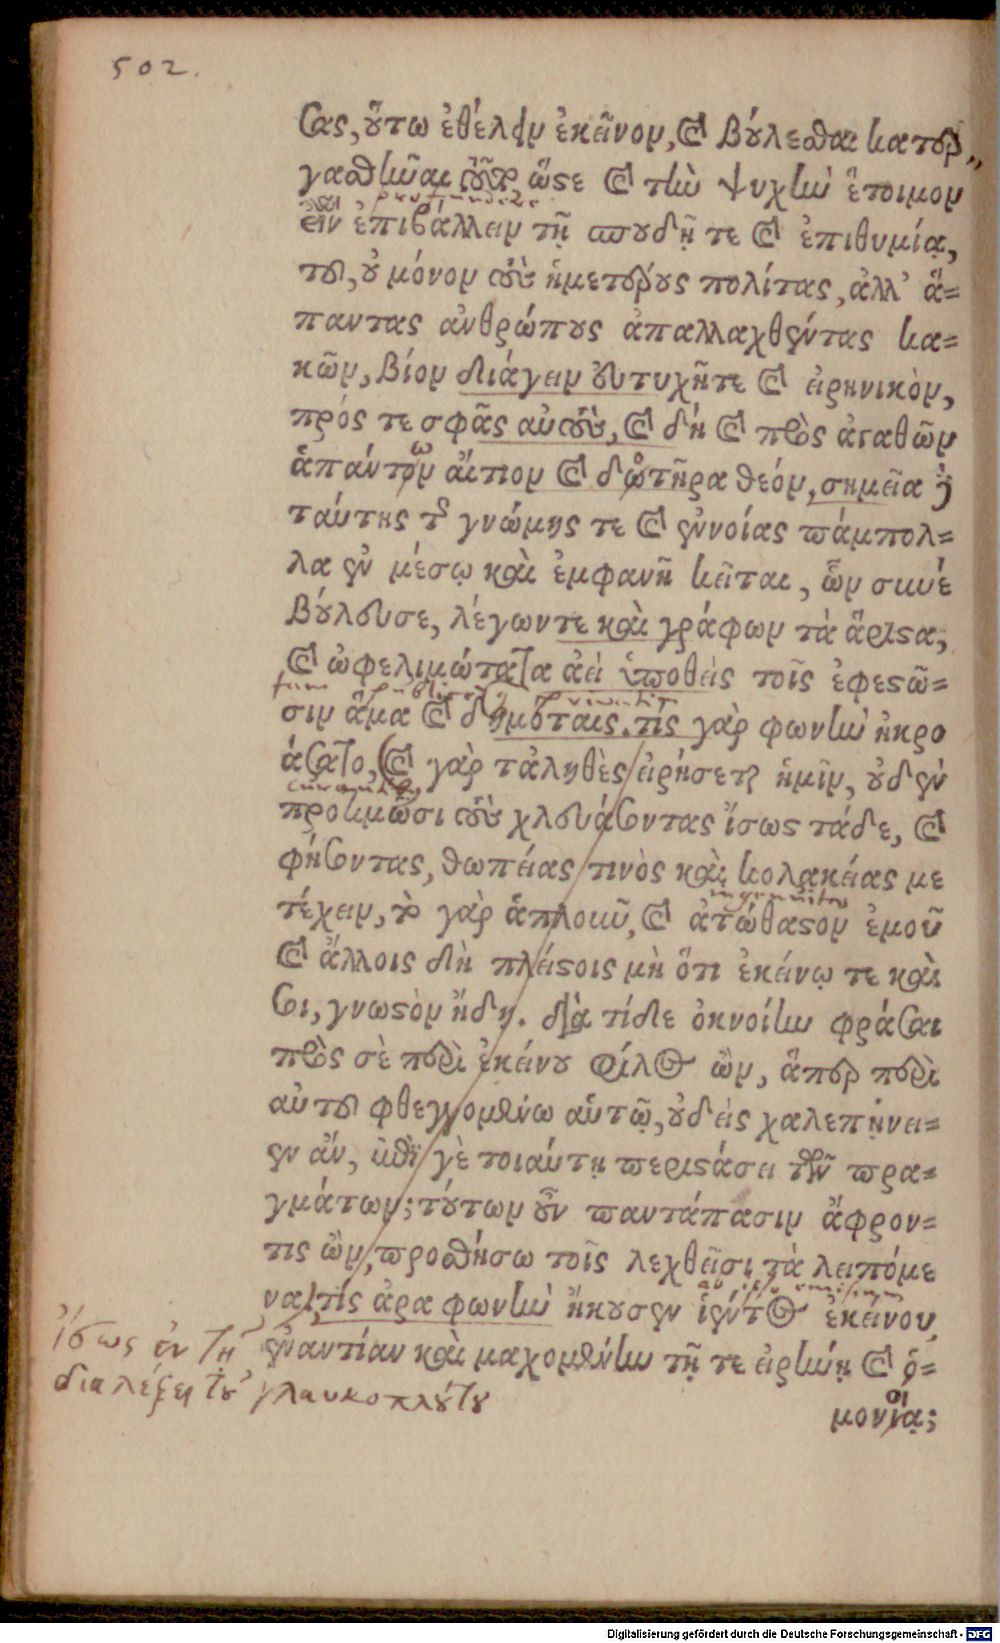 502.
σας, οὕτω ἐθέλειν ἐκεῖνον, καὶ βούλεσθαι κατερ„
γασθῆναι τοῦτο, ὥστε καὶ τὴν ψυχὴν ἕτοιμον
εἶναι ἐπιβάλλειν τῇ σπουδῇ τε καὶ ἐπιθυμίᾳ,
τοῦ, οὐ μόνον τοὺς ἡμετέρους πολίτας, ἀλλ' ἅ-
παντας ἀνθρώπους ἀπαλλαχθέντας κα-
κῶν, βίον διάγειν εὐτυχῆτε καὶ εἰρηνικὸν,
πρός τε σφᾶς αὐτοὺς, καὶ δή καὶ πρὸς ἀγαθῶν
ἁπάντων αἴτιον καὶ δοτῆρα θεόν, σημεῖα δὲ
ταύτης τῆς γνώμης τε καὶ ἐννοίας πάμπολ-
λα ἐν μέσῳ καὶ ἐμφανῆ κεῖται, ὧν σκυέ
βουλευσε, λέγωντε καὶ γράφων τὰ ἄριστα,
καὶ ὠφελιμώτατα ἀεὶ ὑποθεὶς τοῖς ἐφεστῶ-
σιν ἅμα καὶ δημόταις. τίς γὰρ φωνὴν ἠκρο
άσατο, (καὶ γὰρ τἀληθὲς εἰρήσεται ἡμῖν, οὐδὲν
προτιμῶσι τοὺς χλευάσοντας ἴσως τάδε, καὶ
φήσοντας, θωπείας τινὸς καὶ κολακείας με
τέχειν, τὸ γὰρ ἁπλοικὸν, καὶ ἀτώθαστον ἐμοῦ
καὶ ἄλλοις δὴ πλείστοις μὴ ὅτι ἐκείνῳ τε καὶ
σοι, γνωστὸν ἤδη. διὰ τίδε ὀκνοίην φράσαι
πρὸς σὲ περὶ ἐκείνου φίλος ὢν, ἅπερ περὶ
αὐτοῦ φθεγγομένω αὑτῷ, οὐδεὶς χαλεπήνει-
εν ἄν, ἐπὶ γὲ τοιαύτῃ περιστάσει τῶν πρα-
γμάτων; τούτων οὖν παντάπασιν ἄφρον-
τις ὢν, προσθήσω τοῖς λεχθεῖσι τὰ λειπόμε
να), τίς ἄρα φωνὴν ἤκουσεν ἱέντος ἐκείνου
ἐναντίαν καὶ μαχομένην τῇ τε εἰρήνῃ καὶ ὁ-
μονοίᾳ;
ἴσως ἐν τῇ
διαλέξει τοῦ γλαυκοπλούτου